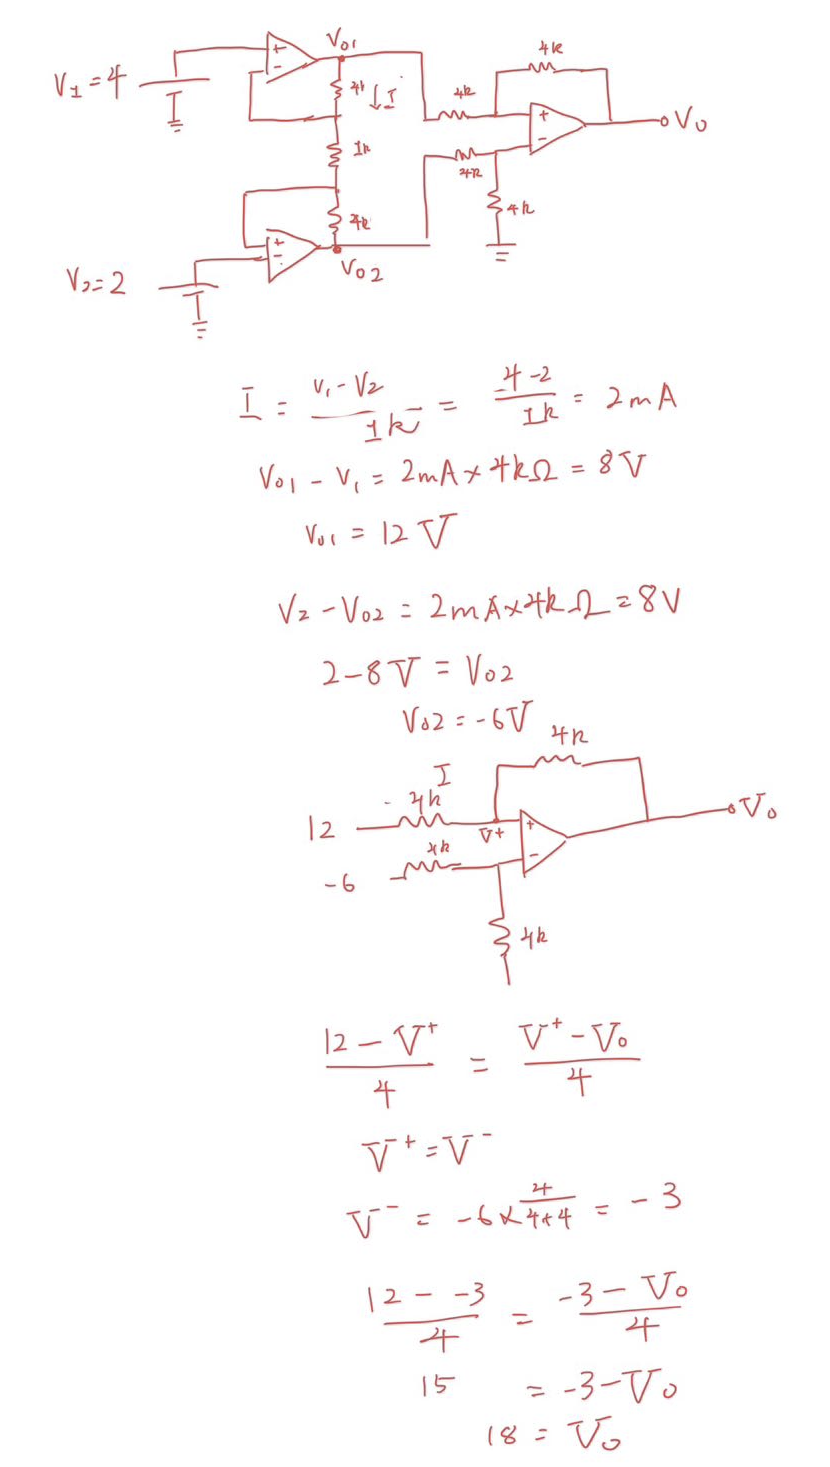 V₁ = 4
+
-
V₀₁
4k
↓I
1k
4k
+
-
V₀₂
V₂ = 2
4k
4k
4k
4k
+
-
V₀
I = (V₁ - V₂) / 1k = (4 - 2) / 1k = 2mA
V₀₁ - V₁ = 2mA × 4kΩ = 8V
V₀₁ = 12V
V₂ - V₀₂ = 2mA × 4kΩ = 8V
2 - 8V = V₀₂
V₀₂ = -6V
4k
I
4k
12
V⁺
+
-
V₀
4k
-6
4k
(12 - V⁺) / 4 = (V⁺ - V₀) / 4
V⁺ = V⁻
V⁻ = -6 × 4 / (4+4) = -3
(12 - -3) / 4 = (-3 - V₀) / 4
15 = -3 - V₀
18 = V₀